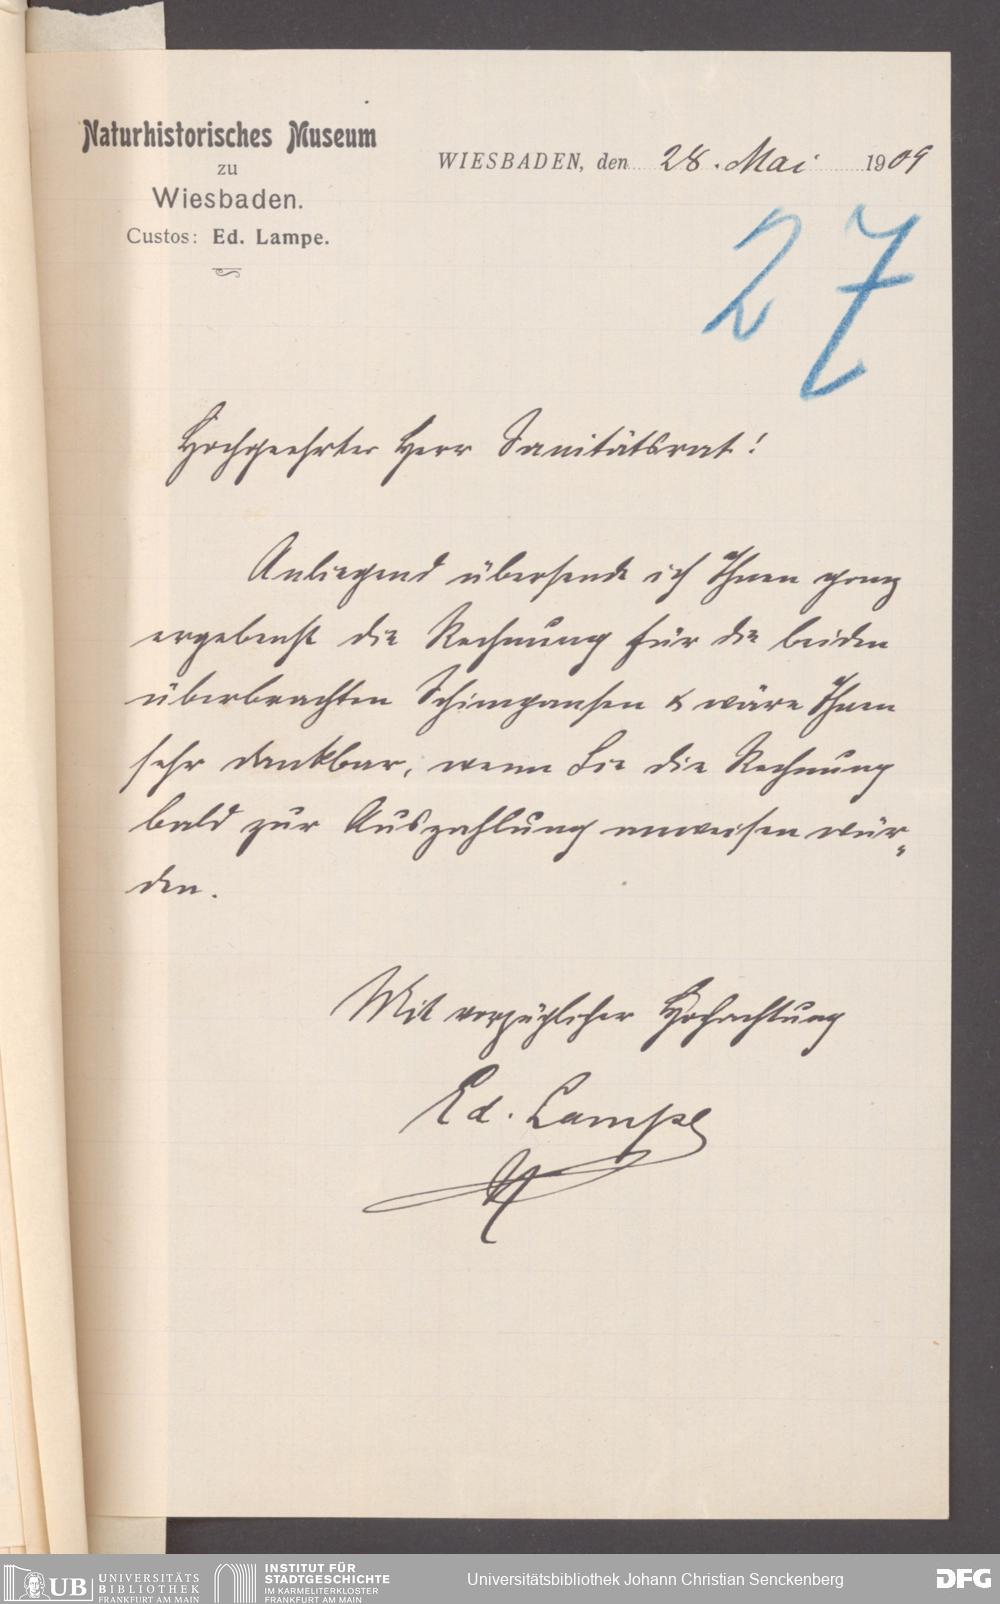 Naturhistorisches Museum
zu
Wiesbaden.
Custos: Ed. Lampe.
WIESBADEN, den 28. Mai 1909
27
Hochgeehrter Herr Sanitätsrat!
Anliegend übersende ich Ihnen ganz
ergebenst die Rechnung für die beiden
überbrachten Schimpansen & wäre Ihnen
sehr dankbar, wenn Sie die Rechnung
bald zur Auszahlung anweisen wür-
den.
Mit vorzüglicher Hochachtung
Ed. Lampe
UB UNIVERSITÄTS
BIBLIOTHEK
FRANKFURT AM MAIN
INSTITUT FÜR
STADTGESCHICHTE
IM KARMELITERKLOSTER
FRANKFURT AM MAIN
Universitätsbibliothek Johann Christian Senckenberg
DFG